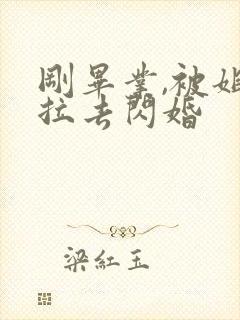 剛畢業,被
拉去閃婚
梁紅玉